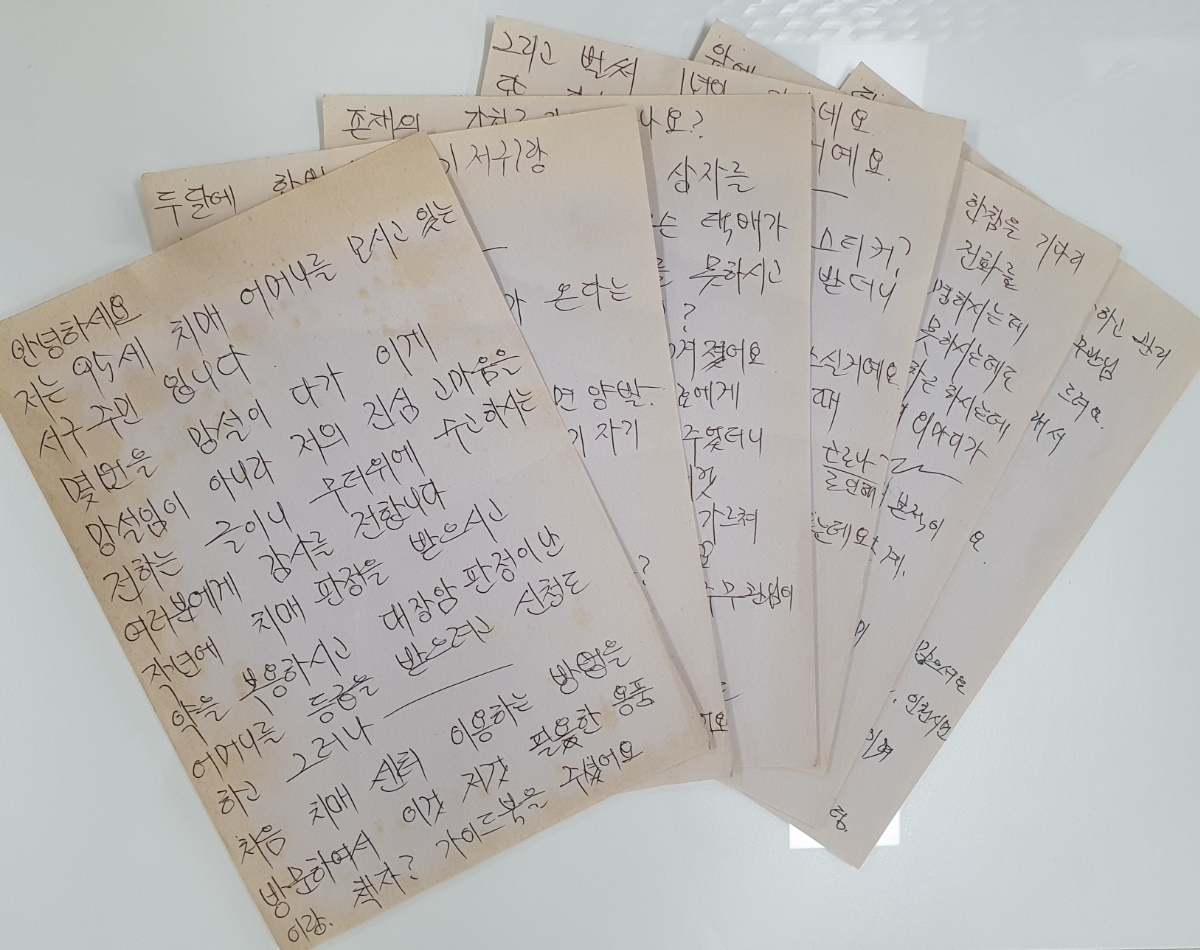 안녕하세요
저는 95세 치매 어머니를 모시고 있는
서구 주민 입니다
몇번을 망설이 다가 이게
망설임이 아니라 저의 진심 고마움을
전하는 글이니 무더위에 수고하시는
여러분에게 감사를 전합니다
작년에 치매 판정을 받으시고
약을 복용하시고 대장암 판정이난
어머니를 등급을 받으려고 신청도
하고 그러나
처음 치매 센터 이용하는 방법을
방문하여서 이것 저것 필요한 용품
이랑. 책자? 가이드북을 주셨어요
두달에
저구랑
가 온다는
면 양발.
기 자기
?
존재의
나요?
상자를
는 택배가
를 못하시고
?
겨 졌어요
에게
주었더니
가르쳐
무관님이
그리고 벌써
네요
거예요.
스티커?
받더니
쓰신거예요
때
는데요
위에
한참을 기다리
전화를
명하시는데
못하시는데도
하는 하시는데
이야기가
본적이
계.
하신 관리
무관님
드려요.
해서
요.
많으셔요
인천시민
이여